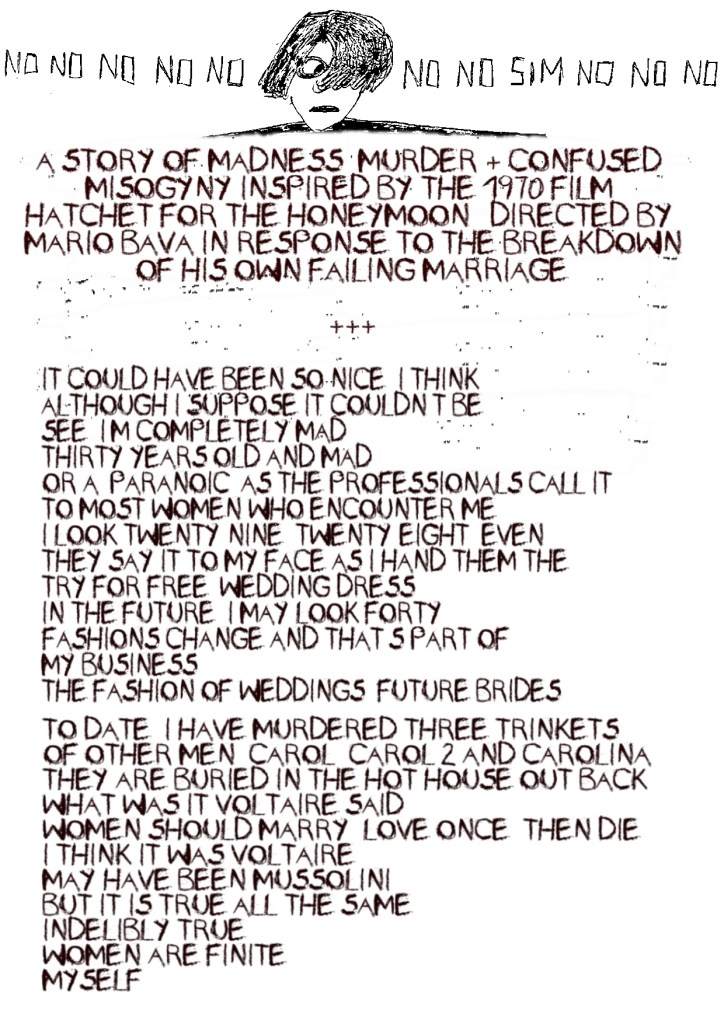 NO NO NO NO NO NO NO SIM NO NO NO
A STORY OF MADNESS MURDER + CONFUSED
MISOGYNY INSPIRED BY THE 1970 FILM
HATCHET FOR THE HONEYMOON DIRECTED BY
MARIO BAVA IN RESPONSE TO THE BREAKDOWN
OF HIS OWN FAILING MARRIAGE
+++
IT COULD HAVE BEEN SO NICE I THINK
ALTHOUGH I SUPPOSE IT COULDN T BE
SEE I M COMPLETELY MAD
THIRTY YEARS OLD AND MAD
OR A PARANOIC AS THE PROFESSIONALS CALL IT
TO MOST WOMEN WHO ENCOUNTER ME
I LOOK TWENTY NINE TWENTY EIGHT EVEN
THEY SAY IT TO MY FACE AS I HAND THEM THE
TRY FOR FREE WEDDING DRESS
IN THE FUTURE I MAY LOOK FORTY
FASHIONS CHANGE AND THAT S PART OF
MY BUSINESS
THE FASHION OF WEDDINGS FUTURE BRIDES
TO DATE I HAVE MURDERED THREE TRINKETS
OF OTHER MEN CAROL CAROL 2 AND CAROLINA
THEY ARE BURIED IN THE HOT HOUSE OUT BACK
WHAT WAS IT VOLTAIRE SAID
WOMEN SHOULD MARRY LOVE ONCE THEN DIE
I THINK IT WAS VOLTAIRE
MAY HAVE BEEN MUSSOLINI
BUT IT IS TRUE ALL THE SAME
INDELIBLY TRUE
WOMEN ARE FINITE
MYSELF